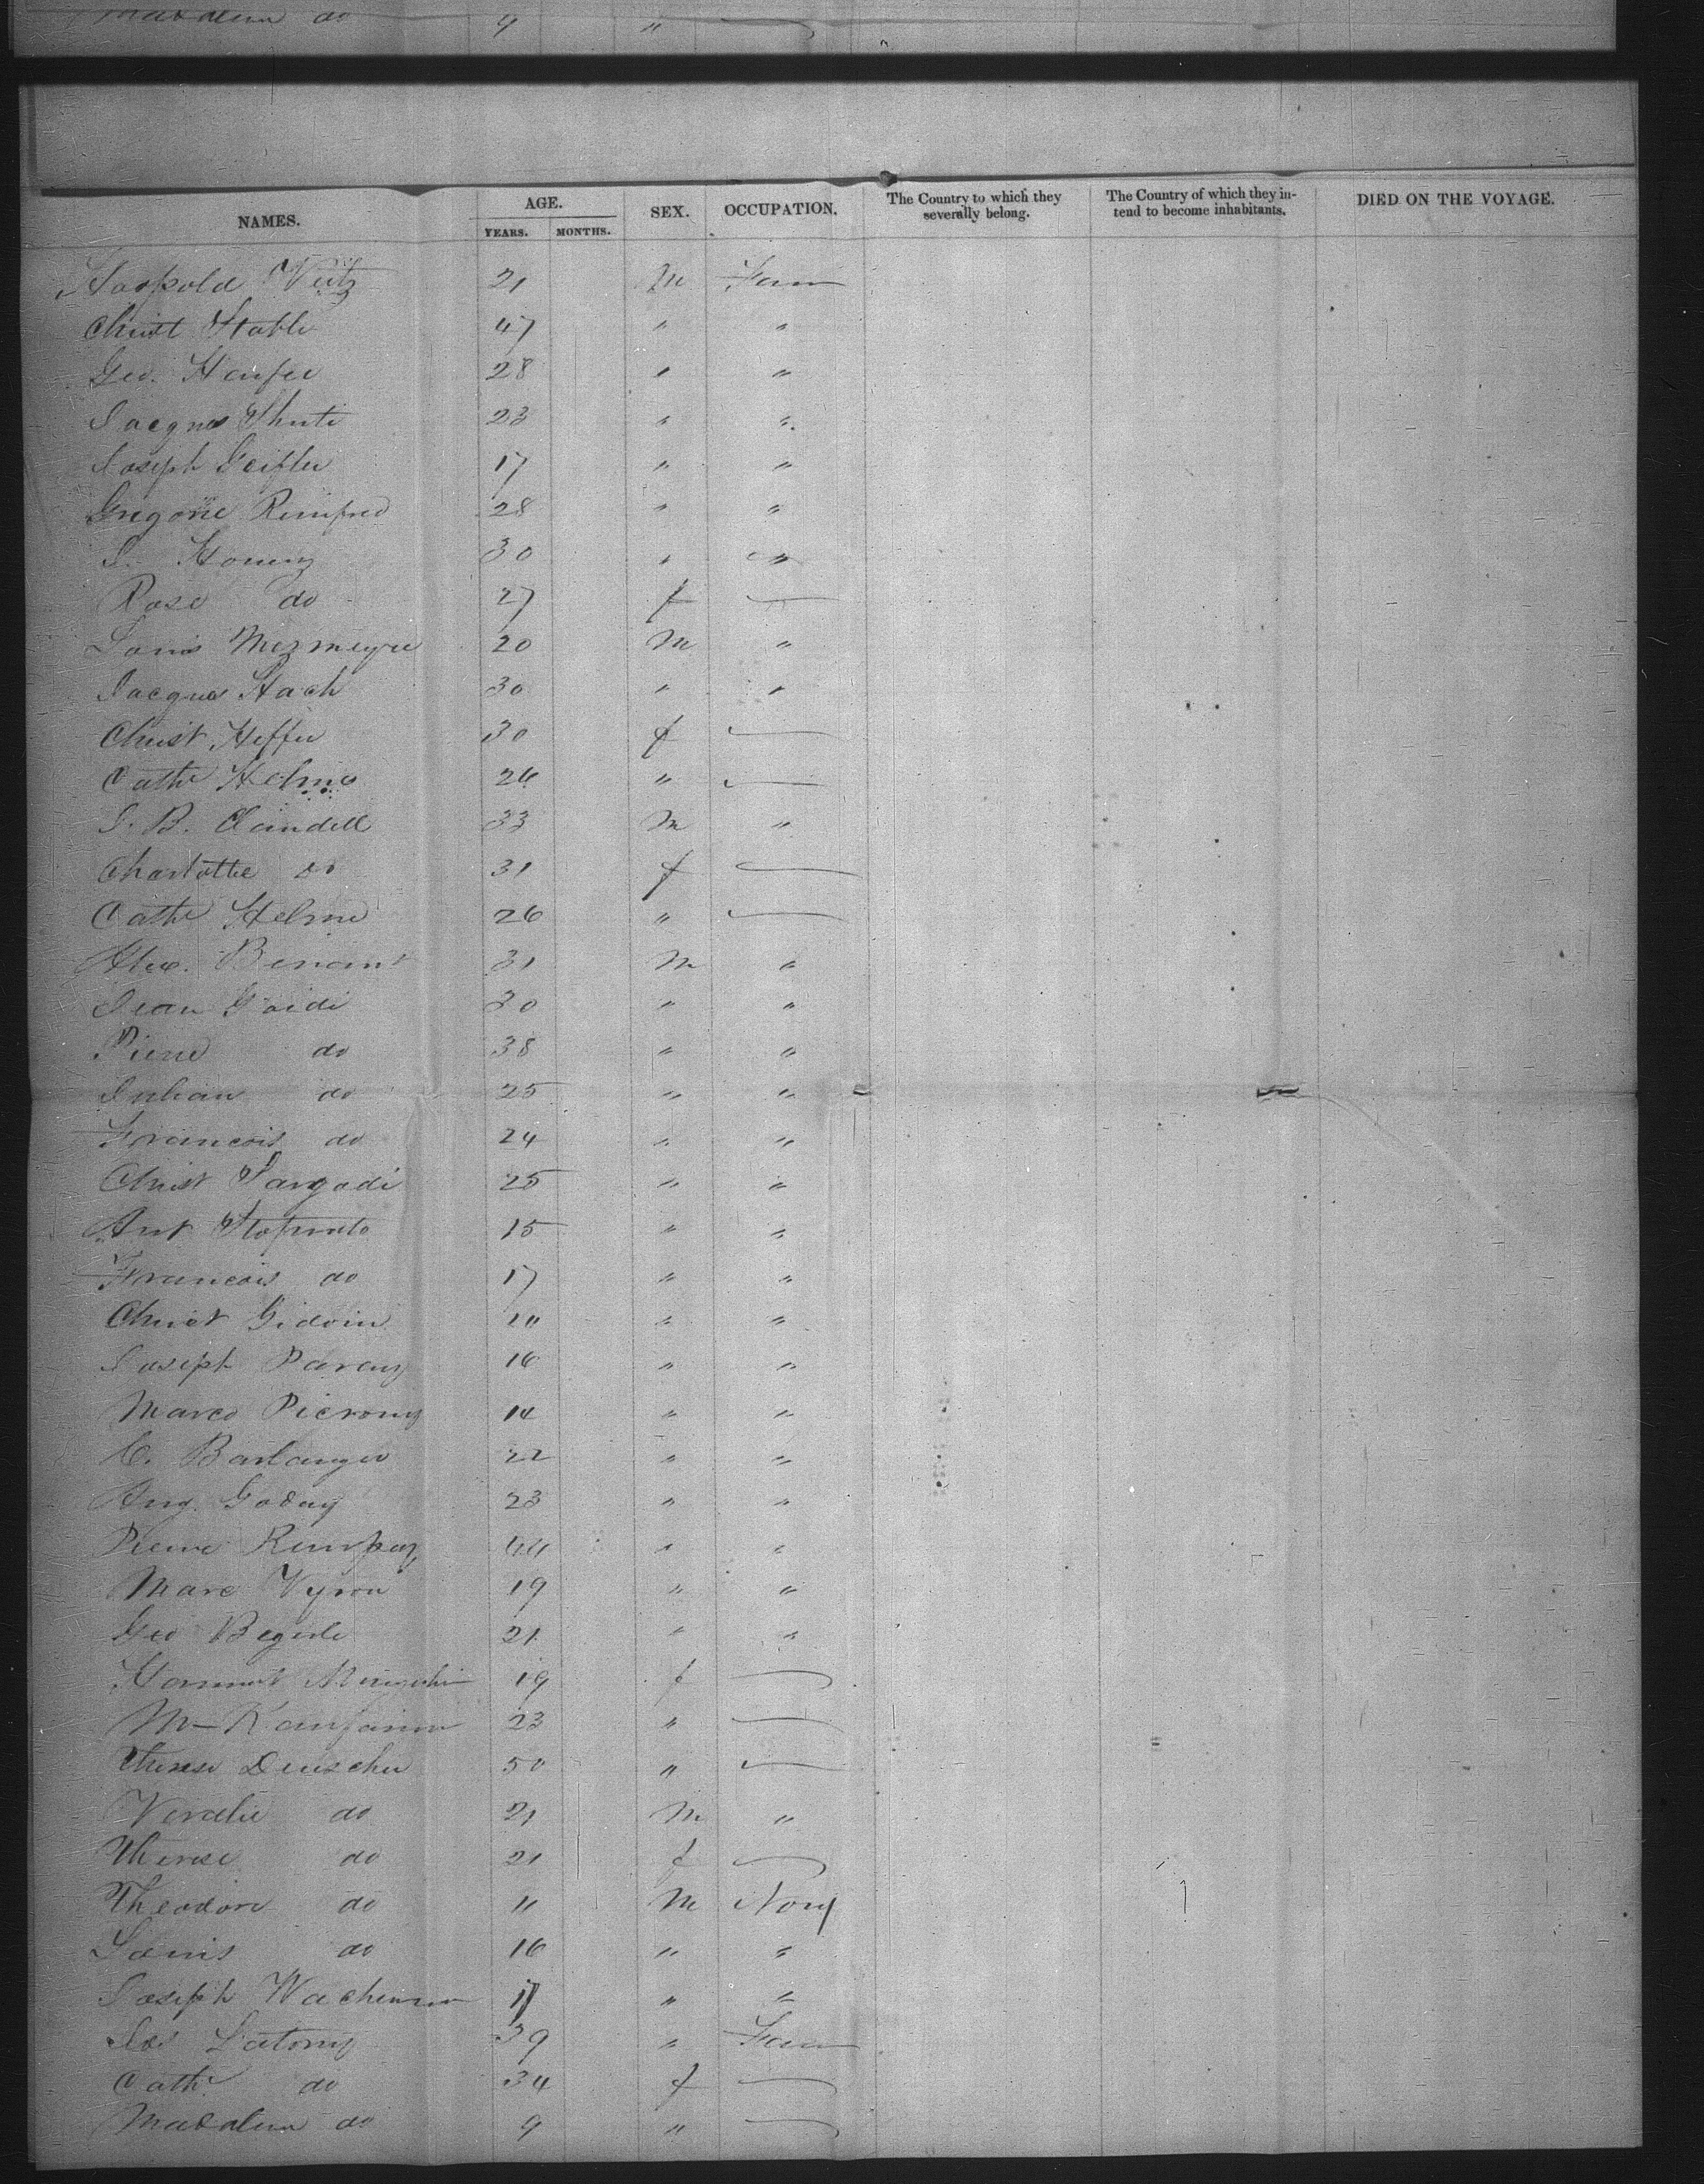 Madalena do 9 "
NAMES. AGE. SEX. OCCUPATION. The Country to which they severally belong. The Country of which they intend to become inhabitants. DIED ON THE VOYAGE.
YEARS. MONTHS.
Leopold Veitz 21 M Farm
Christ Stable 47 " "
Geo. Haufer 28 " "
Jacques Shuti 23 " "
Joseph Geifler 17 " "
Gregorie Rimfred 28 " "
J. Houry 30 " "
Rose do 27 f
Louis Mezmeyre 20 M "
Jacques Hach 30 " "
Christ Heffer 30 f
Cathe Helme 26 "
J. B. Claindell 33 M "
Charlotte do 31 f
Cathe Helme 26 "
Alex. Benant 31 M "
Jean Gaidi 30 " "
Pierre do 38 " "
Julian do 25 " "
Francois do 24 " "
Christ Sargadi 25 " "
Ant 15 " "
Francois do 17 " "
Christ Gidoin " "
Joseph Parany 16 " "
Marco Pierony 14 " "
C. Barlanger 22 " "
Aug. Goday 23 " "
Pierre 44 " "
Marc Vyron 19 " "
Geo Begerle 21 " "
19 f
M- 23 "
Therese Deuscher 50 "
Veralie do 21 M "
Therese do 21 f
Theodore do 11 M None
Louis do 16 " "
Joseph Wachenman 17 " "
Jos Latony 39 " Farm
Cathe do 34 f
Madalena do 9 "